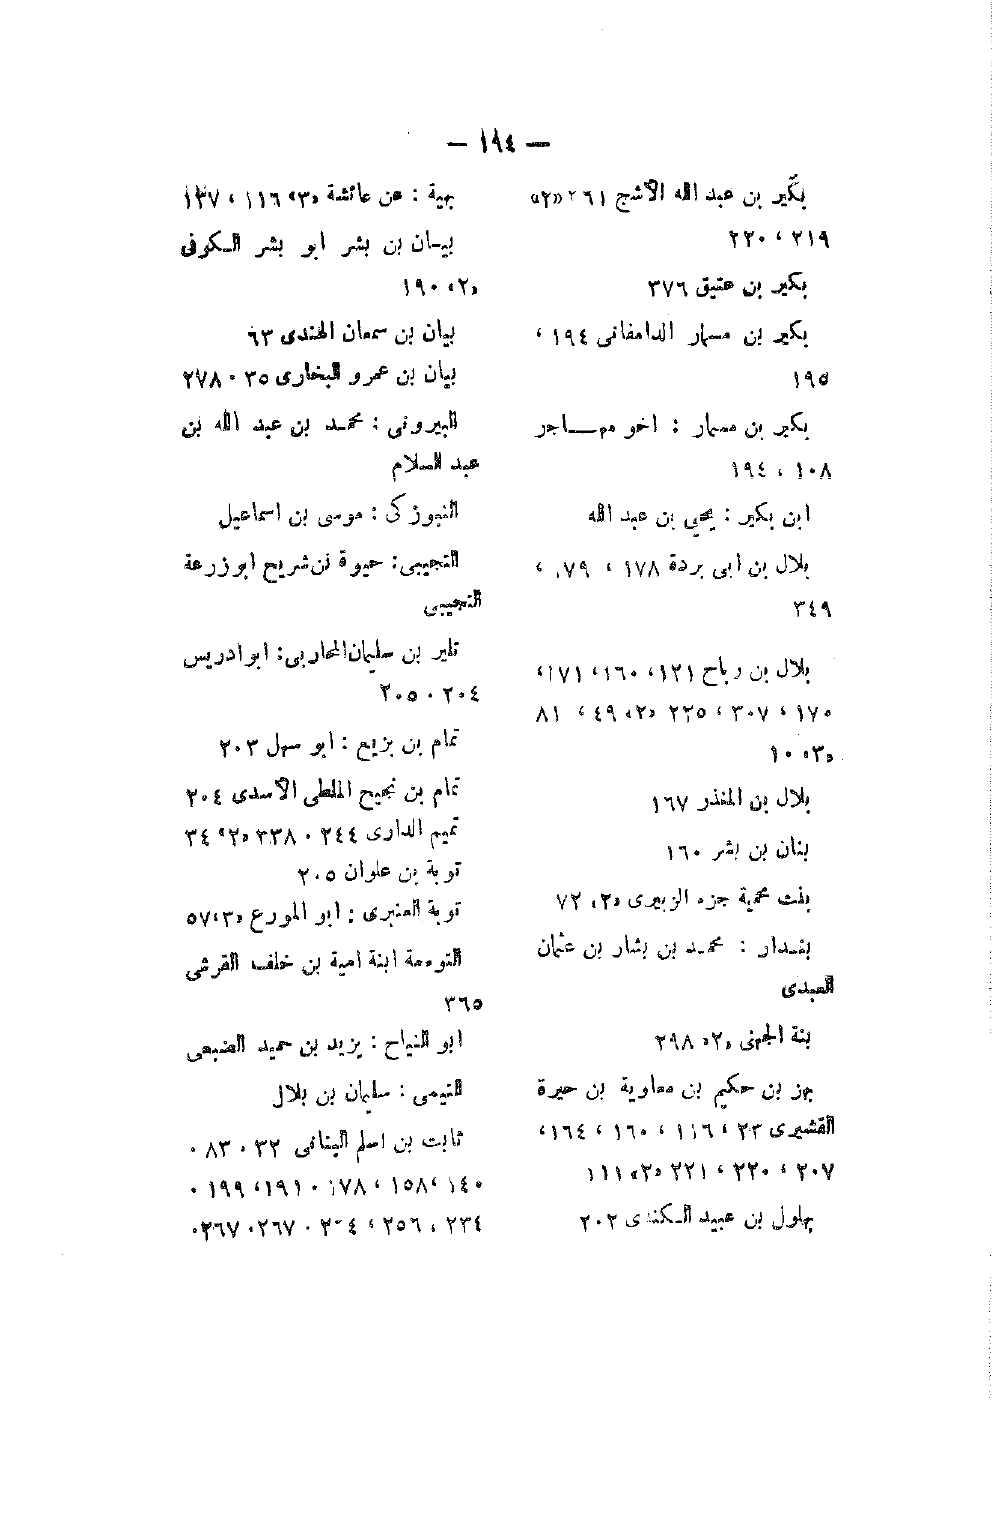 — ١٩٤ —
بكير بن عبد الله الأشج ٢٦١ «٢»
٢١٩ ، ٢٢٠
بكير بن عتيق ٣٧٦
بكير بن مسمار الدامغانى ١٩٤ ،
١٩٥
بكير بن مسمار : اخو مهـــاجر
١٠٨ ، ١٩٤
ابن بكير : يحيى بن عبد الله
بلال بن ابى بردة ١٧٨ ، ٧٩ ،
٣٤٩
بلال بن رباح ١٢١ ، ١٦٠ ، ١٧١ ،
١٧٠ ، ٣٠٧ ، ٢٢٥ «٢» ٤٩ ، ٨١
«٣» ١٠
بلال بن المنذر ١٦٧
بنان بن بشر ١٦٠
بنت محمية جزء الزبيرى «٢» ٧٢
بنـدار : محمـد بن بشار بن عثمان
العبدى
بنة الجهنى «٢» ٢٩٨
بهز بن حكيم بن معاوية بن حيرة
القشيرى ٢٣ ، ١١٦ ، ١٦٠ ، ١٦٤ ،
٢٠٧ ، ٢٢٠ ، ٢٢١ «٢» ١١١
بهلول بن عبيد الـكندى ٢٠٢
بهية : عن عائشة «٣» ١١٦ ، ١٣٧
بيـان بن بشر ابو بشر الـكوفى
«٢» ١٩٠
بيان بن سمعان الهندى ٦٣
بيان بن عمرو البخارى ٣٥ ، ٢٧٨
البيرونى : محمـد بن عبد الله بن
عبد السلام
التبوزكى : موسى بن اسماعيل
التجيبى : حيوة بن شريح ابو زرعة
التجيبى
تلير بن سليمان المحاربى : ابو ادريس
٢٠٤ ، ٢٠٥
تمام بن بزيع : ابو سهل ٢٠٣
تمام بن نجيح الملطى الأسدى ٢٠٤
تميم الدارى ٢٤٤ ، ٢٣٨ «٢» ٣٤
توبة بن علوان ٢٠٥
توبة العنبرى : ابو المورع «٣» ٥٧
التوءمة ابنة امية بن خلف القرشى
٣٦٥
ابو التياح : يزيد بن حميد الضبعى
التيمى : سليمان بن بلال
ثابت بن اسلم البنانى ٣٢ ، ٨٣ ،
١٤٠ ، ١٥٨ ، ١٧٨ ، ١٩١ ، ١٩٩ ،
٢٣٤ ، ٢٥٦ ، ٢٦٧ ، ٢٦٧ ،